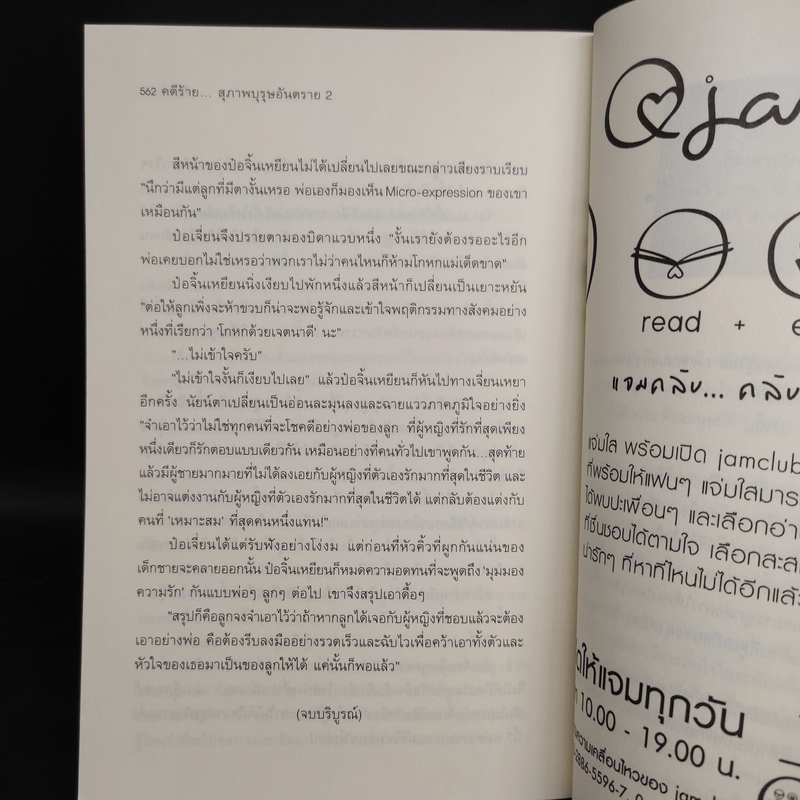 562 คดีร้าย... สุภาพบุรุษอันตราย 2
สีหน้าของป๋อจิ้นเหยียนไม่ได้เปลี่ยนไปเลยขณะกล่าวเสียงราบเรียบ
"นึกว่ามีแต่ลูกที่มีตางั้นเหรอ พ่อเองก็มองเห็น Micro-expression ของเขา
เหมือนกัน"
ป๋อเจี่ยนจึงปรายตามองบิดาแวบหนึ่ง "งั้นเรายังต้องรออะไรอีก
พ่อเคยบอกไม่ใช่เหรอว่าพวกเราไม่ว่าคนไหนก็ห้ามโกหกแม่เด็ดขาด"
ป๋อจิ้นเหยียนนิ่งเงียบไปพักหนึ่งแล้วสีหน้าก็เปลี่ยนเป็นเยาะหยัน
"ต่อให้ลูกเพิ่งจะห้าขวบก็น่าจะพอรู้จักและเข้าใจพฤติกรรมทางสังคมอย่าง
หนึ่งที่เรียกว่า 'โกหกด้วยเจตนาดี' นะ"
"...ไม่เข้าใจครับ"
"ไม่เข้าใจงั้นก็เงียบไปเลย" แล้วป๋อจิ้นเหยียนก็หันไปทางเจี่ยนเหยา
อีกครั้ง นัยน์ตาเปลี่ยนเป็นอ่อนละมุนลงและฉายแววภาคภูมิใจอย่างยิ่ง
"จำเอาไว้ว่าไม่ใช่ทุกคนที่จะโชคดีอย่างพ่อของลูก ที่ผู้หญิงที่รักที่สุดเพียง
หนึ่งเดียวก็รักตอบแบบเดียวกัน เหมือนอย่างที่คนทั่วไปเขาพูดกัน...สุดท้าย
แล้วมีผู้ชายมากมายที่ไม่ได้ลงเอยกับผู้หญิงที่ตัวเองรักมากที่สุดในชีวิต และ
ไม่อาจแต่งงานกับผู้หญิงที่ตัวเองรักมากที่สุดในชีวิตได้ แต่กลับต้องแต่งกับ
คนที่ 'เหมาะสม' ที่สุดคนหนึ่งแทน!"
ป๋อเจี่ยนได้แต่รับฟังอย่างโง่งม แต่ก่อนที่หัวคิ้วที่ผูกกันแน่นของ
เด็กชายจะคลายออกนั้น ป๋อจิ้นเหยียนก็หมดความอดทนที่จะพูดถึง 'มุมมอง
ความรัก' กันแบบพ่อๆ ลูกๆ ต่อไป เขาจึงสรุปเอาดื้อๆ
"สรุปก็คือลูกจงจำเอาไว้ว่าถ้าหากลูกได้เจอกับผู้หญิงที่ชอบแล้วจะต้อง
เอาอย่างพ่อ คือต้องรีบลงมืออย่างรวดเร็วและฉับไวเพื่อคว้าเอาทั้งตัวและ
หัวใจของเธอมาเป็นของลูกให้ได้ แค่นั้นก็พอแล้ว"
(จบบริบูรณ์)
@ja
read + e
แจมคลับ... คลับ
แจ่มใส พร้อมเปิด jamclub
ที่พร้อมให้แฟนๆ แจ่มใสมาร
ได้พบปะเพื่อนๆ และเลือกอ่า
ที่ชื่นชอบได้ตามใจ เลือกสะส
น่ารักๆ ที่หาที่ไหนไม่ได้อีกแล้ว
ให้แจมทุกวัน
10.00 - 19.00 น.
ความเคลื่อนไหวของ jaml
-2986-5596-7